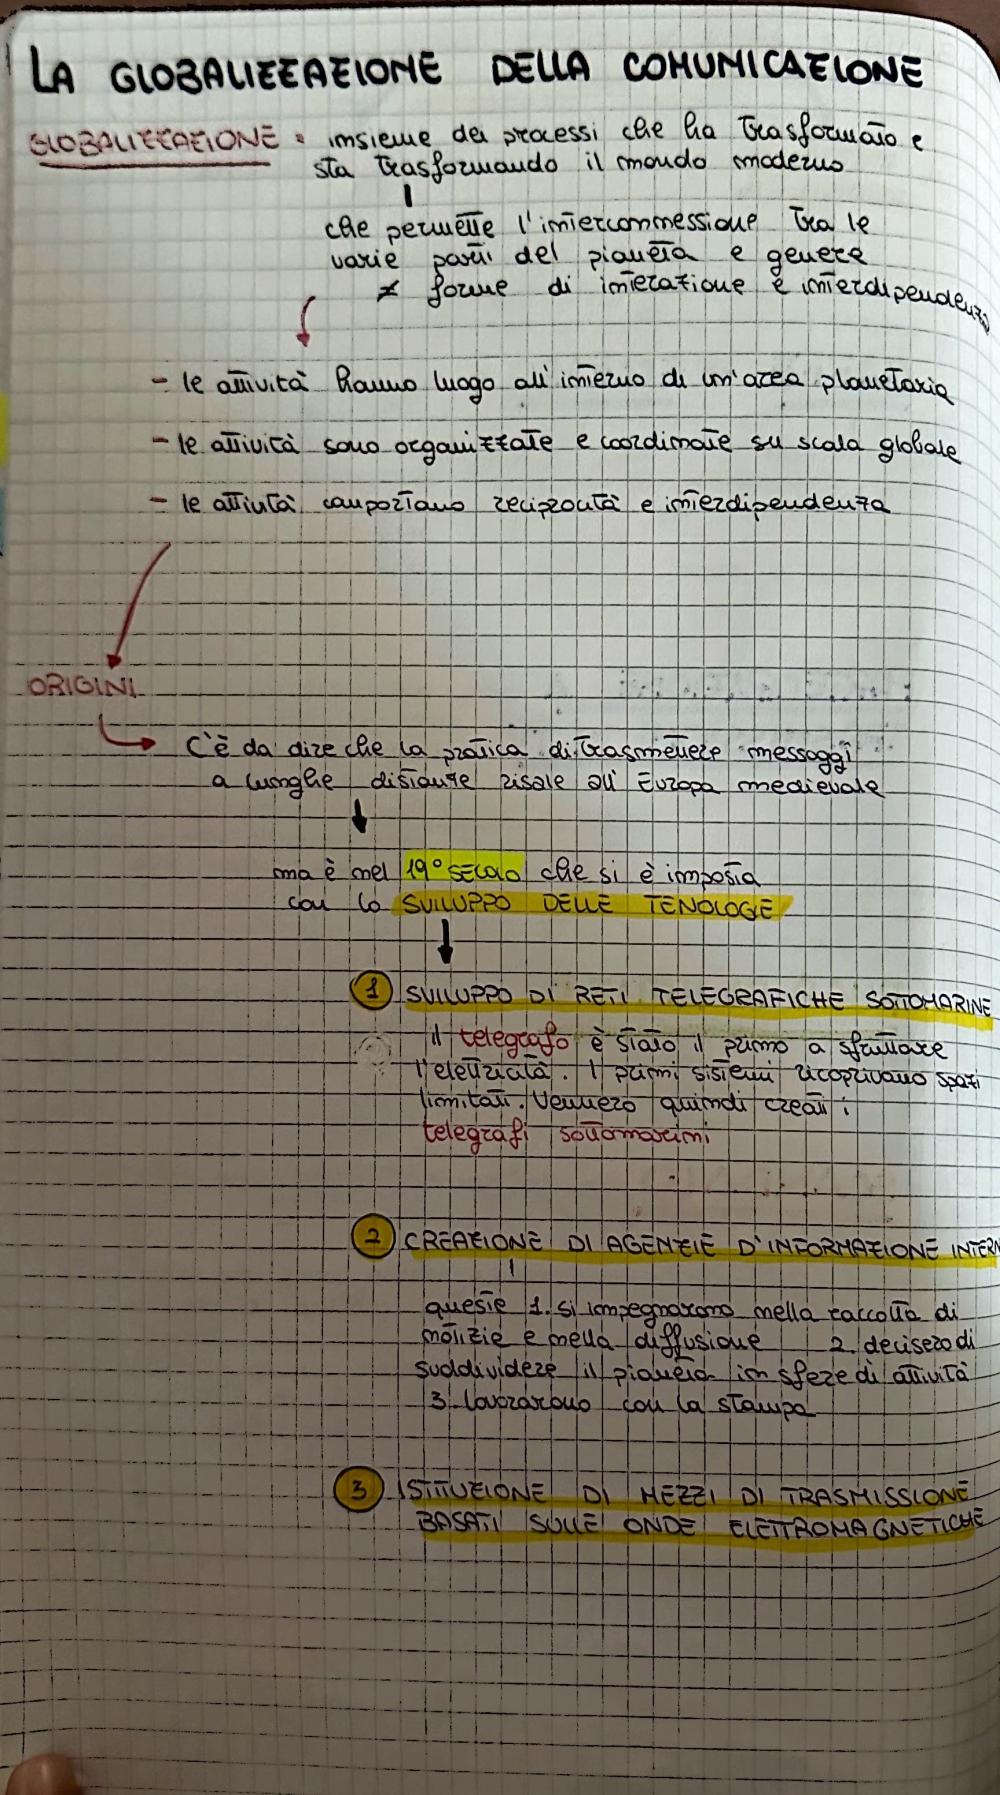 LA GLOBALIZZAZIONE DELLA COMUNICAZIONE
GLOBALIZZAZIONE = insieme dei processi che ha trasformato e
sta trasformando il mondo moderno
che permette l'interconnessione tra le
varie parti del pianeta e genera
forme di interazione e interdipendenza
- le attività hanno luogo all'interno di un'area planetaria
- le attività sono organizzate e coordinate su scala globale
- le attività comportano reciprocità e interdipendenza
ORIGINI
C'è da dire che la pratica di trasmettere messaggi
a lunghe distanze risale all'Europa medievale
ma è nel 19° SECOLO che si è imposta
con lo SVILUPPO DELLE TENOLOGIE
1 SVILUPPO DI RETI TELEGRAFICHE SOTTOMARINE
il telegrafo è stato il primo a sfruttare
l'elettricità. I primi sistemi ricoprivano spazi
limitati. Vennero quindi creati i
telegrafi sottomarini
2 CREAZIONE DI AGENZIE D'INFORMAZIONE INTERN
queste 1. si impegnarono nella raccolta di
notizie e nella diffusione 2. decisero di
suddividere il pianeta in sfere di attività
3. lavorarono con la stampa
3 ISTITUZIONE DI MEZZI DI TRASMISSIONE
BASATI SULLE ONDE ELETTROMAGNETICHE